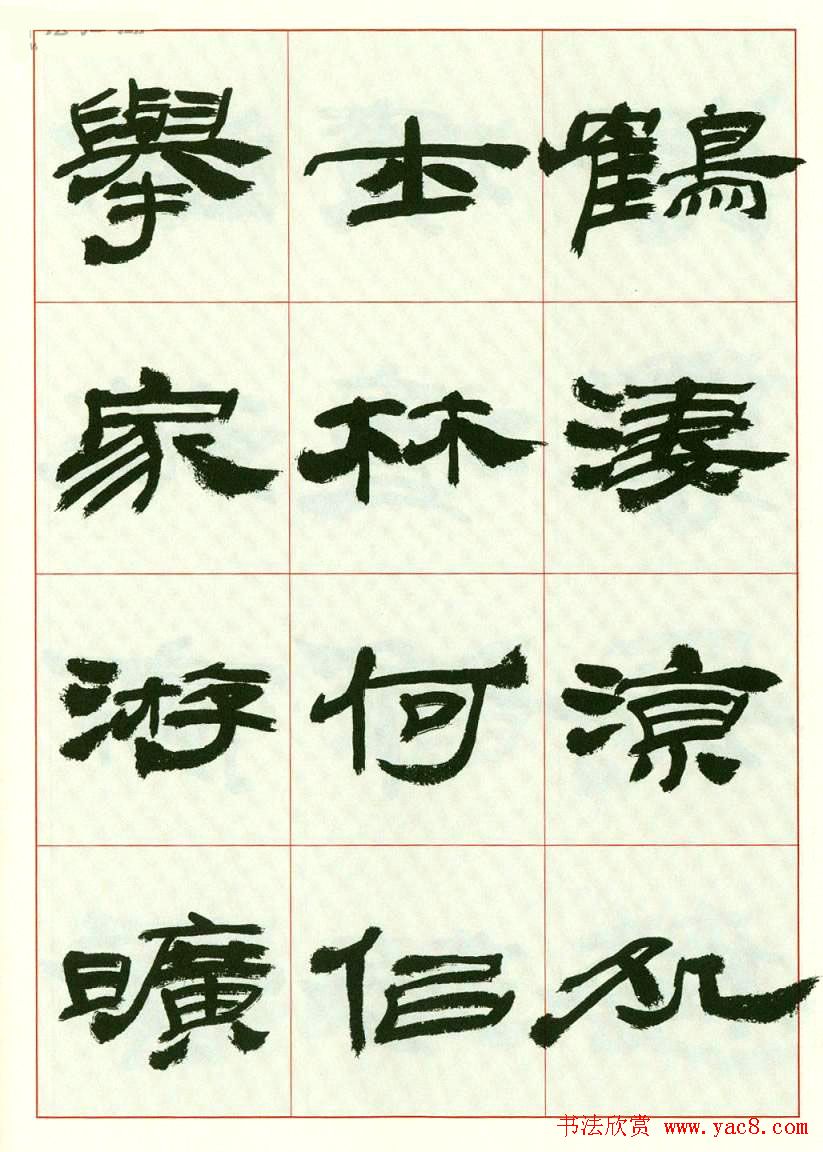 鶴淒涼処
士林何侶
舉家游曠
书法欣赏 www.yac8.com